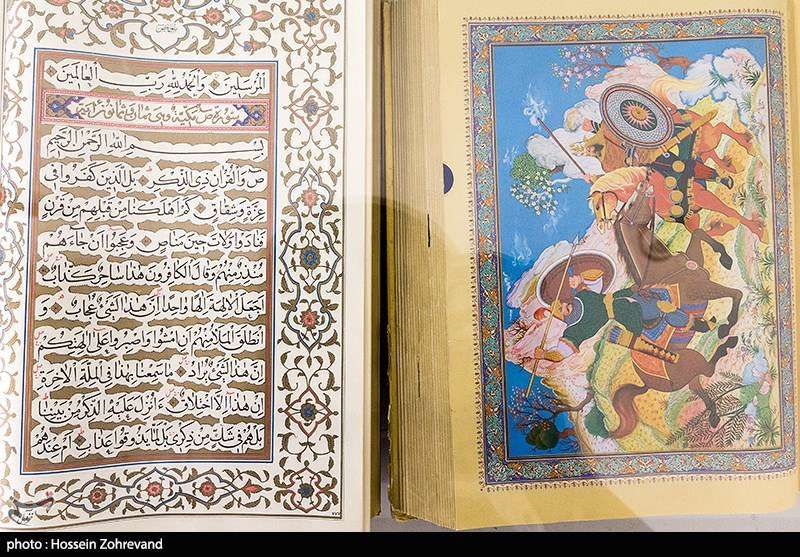 الْمُرْسَلِينَ وَالْحَمْدُ لِلَّهِ رَبِّ الْعَالَمِينَ
سورة ص مكية وهي ثمان وثمانون آية
بِسْمِ اللَّهِ الرَّحْمَنِ الرَّحِيمِ
ص وَالْقُرْآنِ ذِي الذِّكْرِ بَلِ الَّذِينَ كَفَرُوا فِي
عِزَّةٍ وَشِقَاقٍ كَمْ أَهْلَكْنَا مِنْ قَبْلِهِمْ مِنْ قَرْنٍ
فَنَادَوْا وَلَاتَ حِينَ مَنَاصٍ وَعَجِبُوا أَنْ جَاءَهُمْ
مُنْذِرٌ مِنْهُمْ وَقَالَ الْكَافِرُونَ هَذَا سَاحِرٌ كَذَّابٌ
أَجَعَلَ الْآلِهَةَ إِلَهًا وَاحِدًا إِنَّ هَذَا لَشَيْءٌ عُجَابٌ وَ
انْطَلَقَ الْمَلَأُ مِنْهُمْ أَنِ امْشُوا وَاصْبِرُوا عَلَى آلِهَتِكُمْ
إِنَّ هَذَا لَشَيْءٌ يُرَادُ مَا سَمِعْنَا بِهَذَا فِي الْمِلَّةِ الْآخِرَةِ
إِنْ هَذَا إِلَّا اخْتِلَاقٌ أَأُنْزِلَ عَلَيْهِ الذِّكْرُ مِنْ بَيْنِنَا
بَلْ هُمْ فِي شَكٍّ مِنْ ذِكْرِي بَلْ لَمَّا يَذُوقُوا عَذَابِ أَمْ عِنْدَهُمْ
photo : Hossein Zohrevand